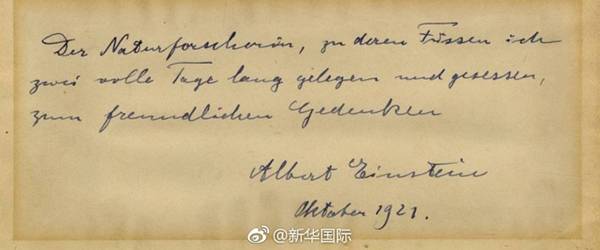 Der Naturforscherin, zu deren Füssen ich
zwei volle Tage lang gelegen und gesessen,
zum freundlichen Gedenken
Albert Einstein
Oktober 1921.
@新华国际